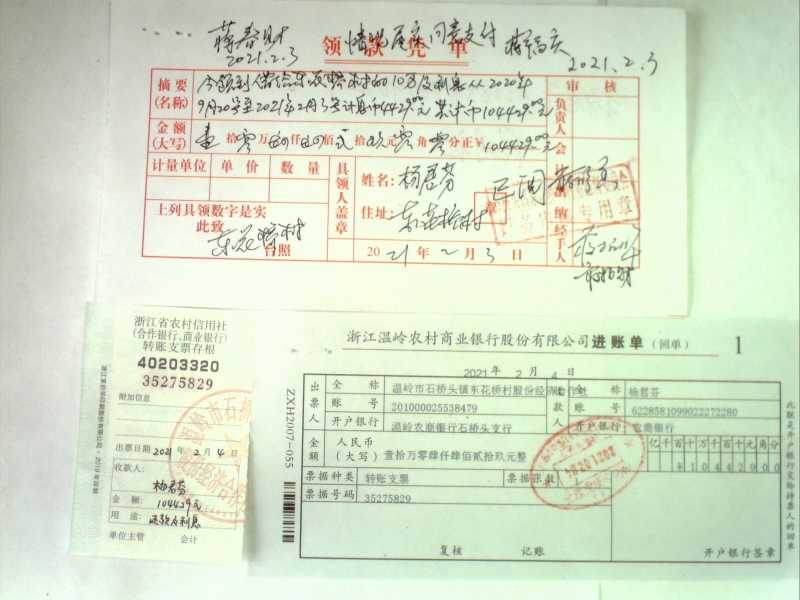 蒋春财
2021.2.3
情况属实 同意支付
2021.2.3
领款凭单
摘要
(名称)
今领到
10万及利息从2020年
9月20号至2021年2月3号计息币4429.00元 共计币104429.00元
审核
负责人
金额
(大写)
壹拾零万 仟 佰 拾 元零角零分正¥104429.00元
会
计量单位 单价 数量
具领人盖章
姓名:杨君芬
住址:东花桥村
已阅
专用章
纳
经手人
上列具领数字是实
此致
东花桥村
台照
2021年2月3日
浙江省农村信用社
(合作银行、商业银行)
转账支票存根
40203320
35275829
附加信息
出票日期2021年2月4日
收款人:
杨君芬
金额:104429元
用途:还款及利息
单位主管 会计
ZXH2007-055
浙江温岭农村商业银行股份有限公司进账单(回单) 1
2021年2月4日
出票人
全称 温岭市石桥头镇东花桥村股份经济合作社
账号 201000025538479
开户银行 温岭农商银行石桥头支行
款人
全称 杨君芬
账号 6228581099022272280
开户银行 农商银行
金额
人民币
(大写) 壹拾万零肆仟肆佰贰拾玖元整
亿千百十万千百十元角分
¥10442900
票据种类 转账支票 票据张数 1
票据号码 35275829
复核 记账
开户银行签章
此联是开户银行交给持票人的回单